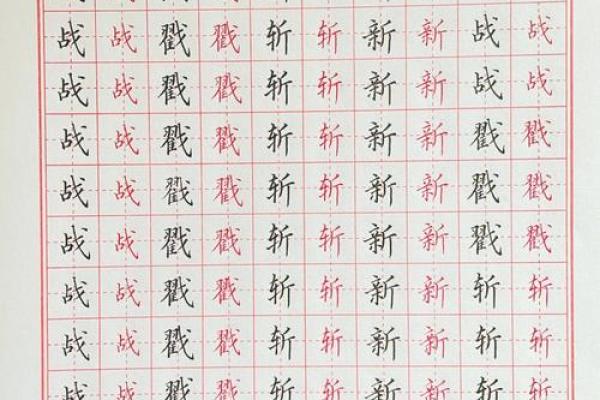 战 战 戳 戳 斩 斩 新 新 战 战
战 战 戳 戳 斩 斩 新 新 战 战
战 战 戳 戳 斩 斩 新 新 戳 戳
战 战 戳 戳 斩 斩 新 新 戳 戳
战 战 戳 戳 斩 斩 新 新 戳 戳
战 战 戳 戳 斩 斩 新 新 斩 斩
战 战 戳 戳 斩 斩 新 新 斩 斩
战 战 戳 戳 斩 斩 新 新 斩 斩